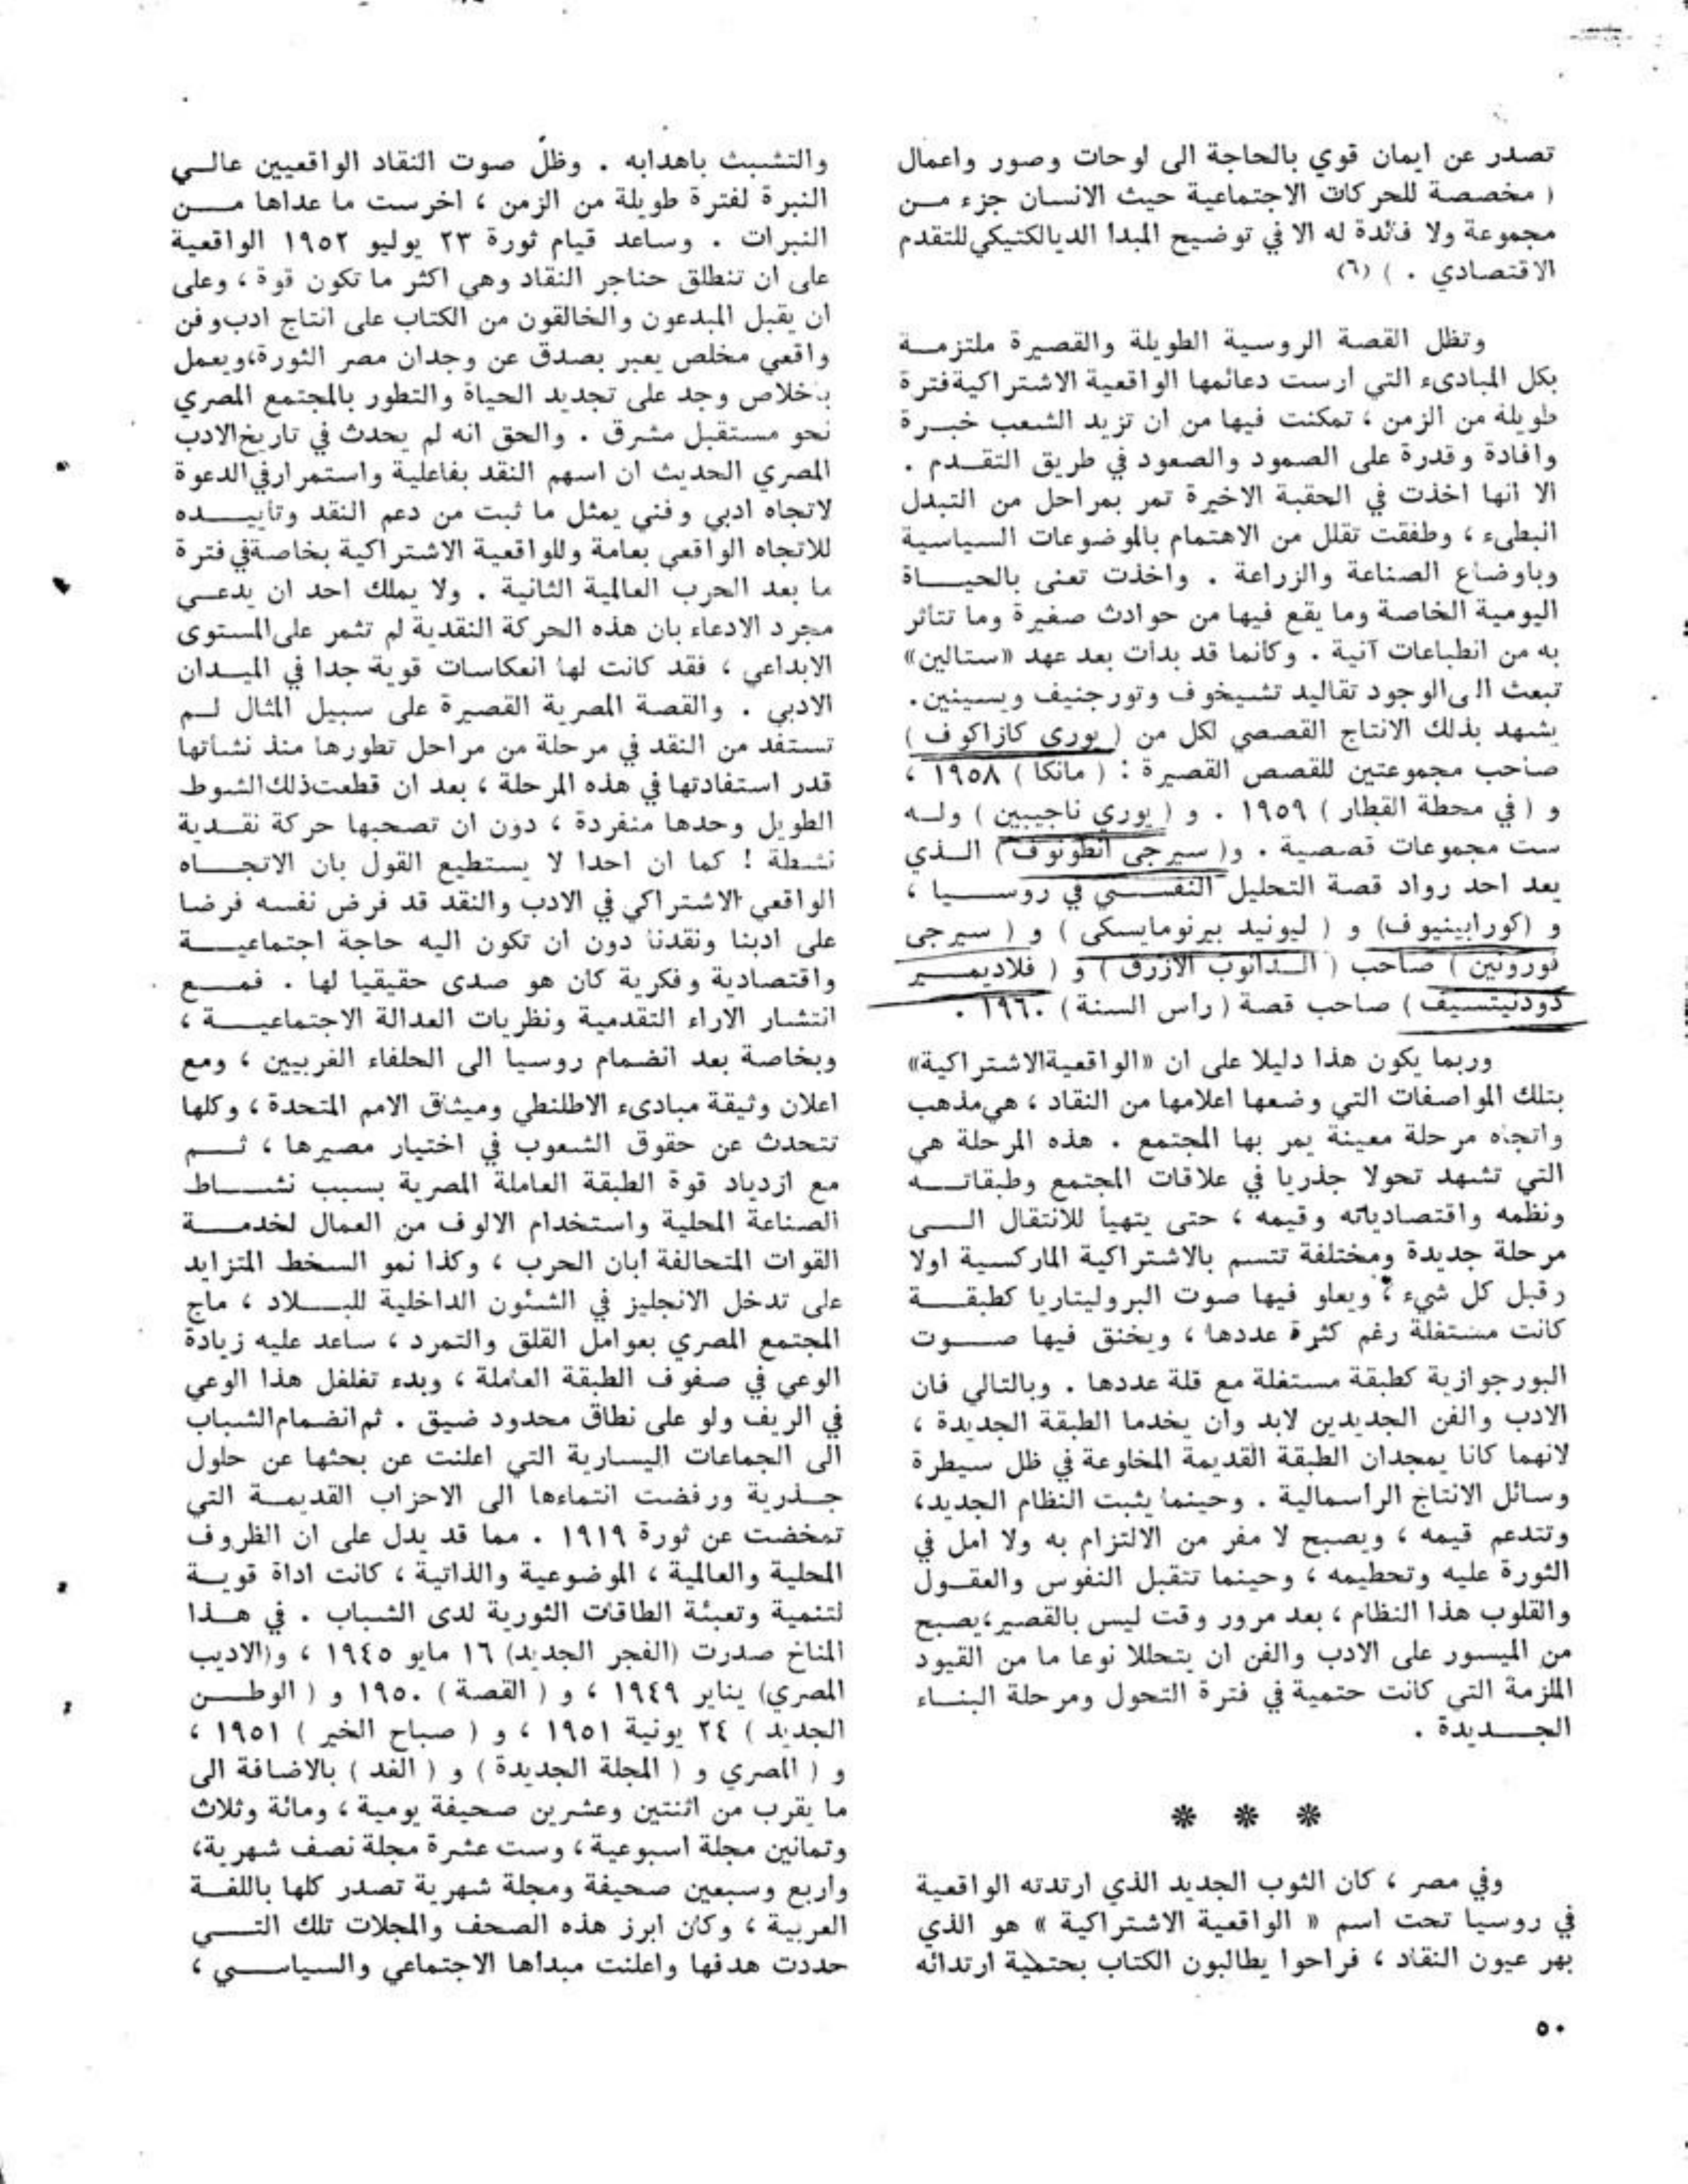 تصدر عن ايمان قوي بالحاجة الى لوحات وصور واعمال
( مخصصة للحركات الاجتماعية حيث الانسان جزء من
مجموعة ولا فائدة له الا في توضيح المبدا الديالكتيكي للتقدم
الاقتصادي . ) (٦)
وتظل القصة الروسية الطويلة والقصيرة ملتزمة
بكل المبادىء التي ارست دعائمها الواقعية الاشتراكية فترة
طويلة من الزمن ، تمكنت فيها من ان تزيد الشعب خبرة
وافادة وقدرة على الصمود والصعود في طريق التقدم .
الا انها اخذت في الحقبة الاخيرة تمر بمراحل من التبدل
البطيء ، وطفقت تقلل من الاهتمام بالموضوعات السياسية
وباوضاع الصناعة والزراعة . واخذت تعنى بالحياة
اليومية الخاصة وما يقع فيها من حوادث صغيرة وما تتاثر
به من انطباعات آنية . وكانما قد بدات بعد عهد «ستالين»
تبعث الى الوجود تقاليد تشيخوف وتورجنيف ويسينين.
يشهد بذلك الانتاج القصصي لكل من ( يورى كازاكوف )
صاحب مجموعتين للقصص القصيرة : ( مانكا ) ١٩٥٨ ،
و ( في محطة القطار ) ١٩٥٩ . و ( يوري ناجيبين ) وله
ست مجموعات قصصية . و( سيرجى انطونوف ) الذي
يعد احد رواد قصة التحليل النفسي في روسيا ،
و (كورابينيوف) و ( ليونيد بيرنومايسكى ) و ( سيرجى
فورونين ) صاحب ( الدانوب الازرق ) و ( فلاديمير
دودنيتسيف ) صاحب قصة ( راس السنة ) ١٩٦٠ .
وربما يكون هذا دليلا على ان «الواقعية الاشتراكية»
بتلك المواصفات التي وضعها اعلامها من النقاد ، هي مذهب
واتجاه مرحلة معينة يمر بها المجتمع . هذه المرحلة هي
التي تشهد تحولا جذريا في علاقات المجتمع وطبقاته
ونظمه واقتصادياته وقيمه ، حتى يتهيأ للانتقال الى
مرحلة جديدة ومختلفة تتسم بالاشتراكية الماركسية اولا
وقبل كل شيء ؛ ويعلو فيها صوت البروليتاريا كطبقة
كانت مستغلة رغم كثرة عددها ، ويخنق فيها صوت
البورجوازية كطبقة مستغلة مع قلة عددها . وبالتالي فان
الادب والفن الجديدين لابد وان يخدما الطبقة الجديدة ،
لانهما كانا يمجدان الطبقة القديمة المخلوعة في ظل سيطرة
وسائل الانتاج الراسمالية . وحينما يثبت النظام الجديد،
وتتدعم قيمه ، ويصبح لا مفر من الالتزام به ولا امل في
الثورة عليه وتحطيمه ، وحينما تتقبل النفوس والعقول
والقلوب هذا النظام ، بعد مرور وقت ليس بالقصير، يصبح
من الميسور على الادب والفن ان يتحللا نوعا ما من القيود
الملزمة التي كانت حتمية في فترة التحول ومرحلة البناء
الجديدة .
* * *
وفي مصر ، كان الثوب الجديد الذي ارتدته الواقعية
في روسيا تحت اسم « الواقعية الاشتراكية » هو الذي
بهر عيون النقاد ، فراحوا يطالبون الكتاب بحتمية ارتدائه
والتشبث باهدابه . وظلّ صوت النقاد الواقعيين عالي
النبرة لفترة طويلة من الزمن ، اخرست ما عداها من
النبرات . وساعد قيام ثورة ٢٣ يوليو ١٩٥٢ الواقعية
على ان تنطلق حناجر النقاد وهي اكثر ما تكون قوة ، وعلى
ان يقبل المبدعون والخالقون من الكتاب على انتاج ادب وفن
واقعي مخلص يعبر بصدق عن وجدان مصر الثورة، ويعمل
باخلاص وجد على تجديد الحياة والتطور بالمجتمع المصري
نحو مستقبل مشرق . والحق انه لم يحدث في تاريخ الادب
المصري الحديث ان اسهم النقد بفاعلية واستمرار في الدعوة
لاتجاه ادبي وفني يمثل ما ثبت من دعم النقد وتاييده
للاتجاه الواقعي بعامة وللواقعية الاشتراكية بخاصة في فترة
ما بعد الحرب العالمية الثانية . ولا يملك احد ان يدعي
مجرد الادعاء بان هذه الحركة النقدية لم تثمر على المستوى
الابداعي ، فقد كانت لها انعكاسات قوية جدا في الميدان
الادبي . والقصة المصرية القصيرة على سبيل المثال لم
تستفد من النقد في مرحلة من مراحل تطورها منذ نشاتها
قدر استفادتها في هذه المرحلة ، بعد ان قطعت ذلك الشوط
الطويل وحدها منفردة ، دون ان تصحبها حركة نقدية
نشطة ! كما ان احدا لا يستطيع القول بان الاتجاه
الواقعي الاشتراكي في الادب والنقد قد فرض نفسه فرضا
على ادبنا ونقدنا دون ان تكون اليه حاجة اجتماعية
واقتصادية وفكرية كان هو صدى حقيقيا لها . فمع
انتشار الاراء التقدمية ونظريات العدالة الاجتماعية ،
وبخاصة بعد انضمام روسيا الى الحلفاء الغربيين ، ومع
اعلان وثيقة مبادىء الاطلنطي وميثاق الامم المتحدة ، وكلها
تتحدث عن حقوق الشعوب في اختيار مصيرها ، ثم
مع ازدياد قوة الطبقة العاملة المصرية بسبب نشاط
الصناعة المحلية واستخدام الالوف من العمال لخدمة
القوات المتحالفة ابان الحرب ، وكذا نمو السخط المتزايد
على تدخل الانجليز في الشئون الداخلية للبلاد ، ماج
المجتمع المصري بعوامل القلق والتمرد ، ساعد عليه زيادة
الوعي في صفوف الطبقة العاملة ، وبدء تغلغل هذا الوعي
في الريف ولو على نطاق محدود ضيق . ثم انضمام الشباب
الى الجماعات اليسارية التي اعلنت عن بحثها عن حلول
جذرية ورفضت انتماءها الى الاحزاب القديمة التي
تمخضت عن ثورة ١٩١٩ . مما قد يدل على ان الظروف
المحلية والعالمية ، الموضوعية والذاتية ، كانت اداة قوية
لتنمية وتعبئة الطاقات الثورية لدى الشباب . في هذا
المناخ صدرت (الفجر الجديد) ١٦ مايو ١٩٤٥ ، و(الاديب
المصري) يناير ١٩٤٩ ، و ( القصة ) ١٩٥٠ و ( الوطن
الجديد ) ٢٤ يونية ١٩٥١ ، و ( صباح الخير ) ١٩٥١ ،
و ( المصري و ( المجلة الجديدة ) و ( الغد ) بالاضافة الى
ما يقرب من اثنتين وعشرين صحيفة يومية ، ومائة وثلاث
وثمانين مجلة اسبوعية ، وست عشرة مجلة نصف شهرية،
واربع وسبعين صحيفة ومجلة شهرية تصدر كلها باللغة
العربية ، وكان ابرز هذه الصحف والمجلات تلك التي
حددت هدفها واعلنت مبداها الاجتماعي والسياسي ،
٥٠